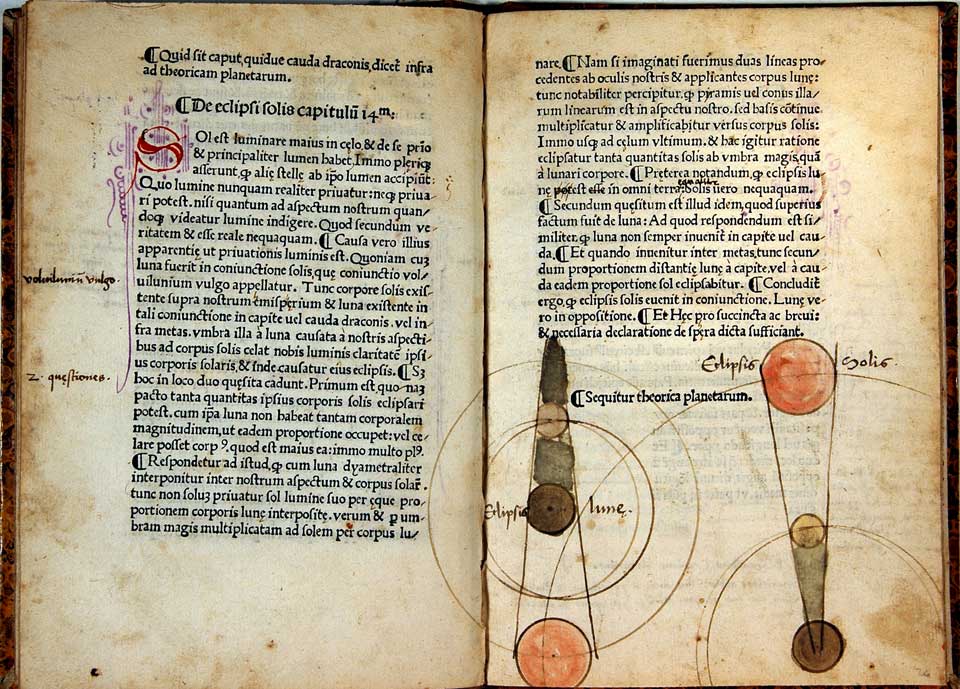 ⁋Quid sit caput, quidue cauda draconis, dicet̄ infra
ad theoricam planetarum.
⁋De eclipsi solis capitulū 14.m:
SOl est luminare maius in cęlo, & de se prīo
& principaliter lumen habet. Immo pleriqȝ
asserunt, ꝙ alię stellę ab ip̄o lumen accipiūt:
Quo lumine nunquam realiter priuatur: neqȝ priua⸗
ri potest. nisi quantum ad aspectum nostrum quan⸗
doqȝ videatur lumine indigere. Quod secundum ve⸗
ritatem & esse reale nequaquam. ⁋Causa vero illius
apparentię ut priuationis luminis est. Quoniam cuȝ
luna fuerit in coniunctione solis, quę coniunctio vol⸗
uilunium vulgo appellatur. Tunc corpore solis exis⸗
tente supra nostrum emisperium & luna existente in
tali coniunctione in capite uel cauda draconis. vel in⸗
fra metas. vmbra illa à luna causata à nostris aspecti⸗
bus ad corpus solis celat nobis luminis claritatē ipsi⸗
us corporis solaris, & inde causatur eius eclipsis. ⁋Sȝ
hoc in loco duo quęsita cadunt. Primum est quo⸗naȝ
pacto tanta quantitas ipsius corporis solis eclipsari
potest. cum ip̄a luna non habeat tantam corporalem
magnitudinem, ut eadem proportione occupet: vel ce⸗
lare posset corpꝰ. quod est maius ea: immo multo plꝰ.
⁋Respondetur ad istud, ꝙ cum luna dyametraliter
interponitur inter nostrum aspectum & corpus solar̄.
tunc non soluȝ priuatur sol lumine suo per ęque pro⸗
portionem corporis lunę interposite. verum & ꝑ um⸗
bram magis multiplicatam ad solem per corpus lu⸗
voluilumū vulgo.
2. questiones.
nare. ⁋Nam si imaginati fuerimus duas lineas pro⸗
cedentes ab oculis nostris & applicantes corpus lunę:
tunc notabiliter percipitur, ꝙ pyramis uel conus illa⸗
rum linearum est in aspectu nostro. sed basis cōtinue
multiplicatur & amplificabitur versus corpus solis:
Immo usqȝ ad cęlum vltimum. & hac igitur ratione
eclipsatur tanta quantitas solis ab vmbra magis, quā
à lunari corpore. ⁋Preterea notandum, ꝙ eclipsis lu⸗
nę potest esse in omni terra, Solis uero nequaquam.
⁋Secundum quęsitum est illud idem, quod superius
factum fuit de luna: Ad quod respondendum est si⸗
militer, ꝙ luna non semper inuenit̄ in capite uel cau⸗
da. ⁋Et quando inuenitur inter metas, tunc secun⸗
dum proportionem distantię lunę à capite, vel à cau⸗
da eadem proportione sol eclipsabitur. ⁋Concludit̄
ergo, ꝙ eclipsis solis euenit in coniunctione. Lunę ve⸗
ro in oppositione. ⁋Et Hęc pro succincta ac breui:
& necessaria declaratione de spęra dicta sufficiant.
Eclipsis Solis.
⁋Sequitur theorica planetarum.
Eclipsis lunę.